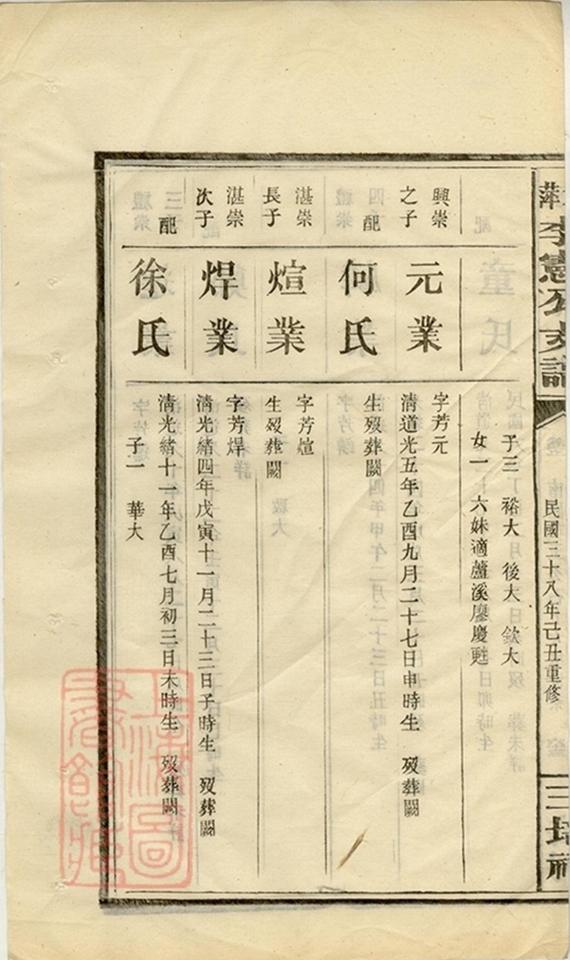 李憲公支譜
民國三十八年己丑重修
子三 裕大 後大 欽大
女一 六妹適蘆溪廖慶甦
興崇
之子
元業
字芳元
清道光五年乙酉九月二十七日申時生 歿葬闕
配
何氏
生歿葬闕
湛崇
長子
煊業
字芳煊
生歿葬闕
湛崇
次子
焊業
字芳焊
清光緒四年戊寅十一月二十三日子時生 歿葬闕
配
徐氏
清光緒十一年乙酉七月初三日未時生 歿葬闕
子一 華大
上海圖
書館藏